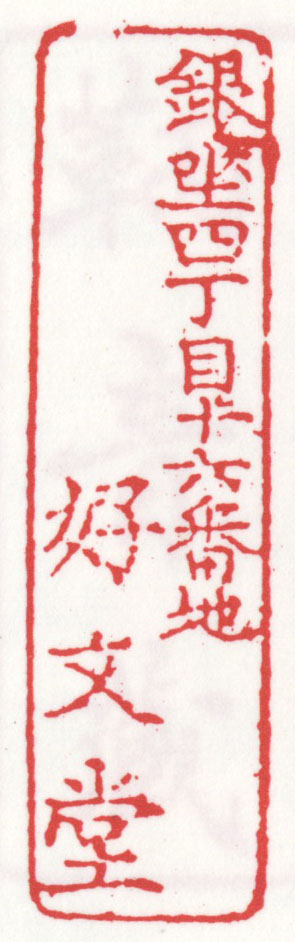 銀坐四丁目十六番地
好文堂